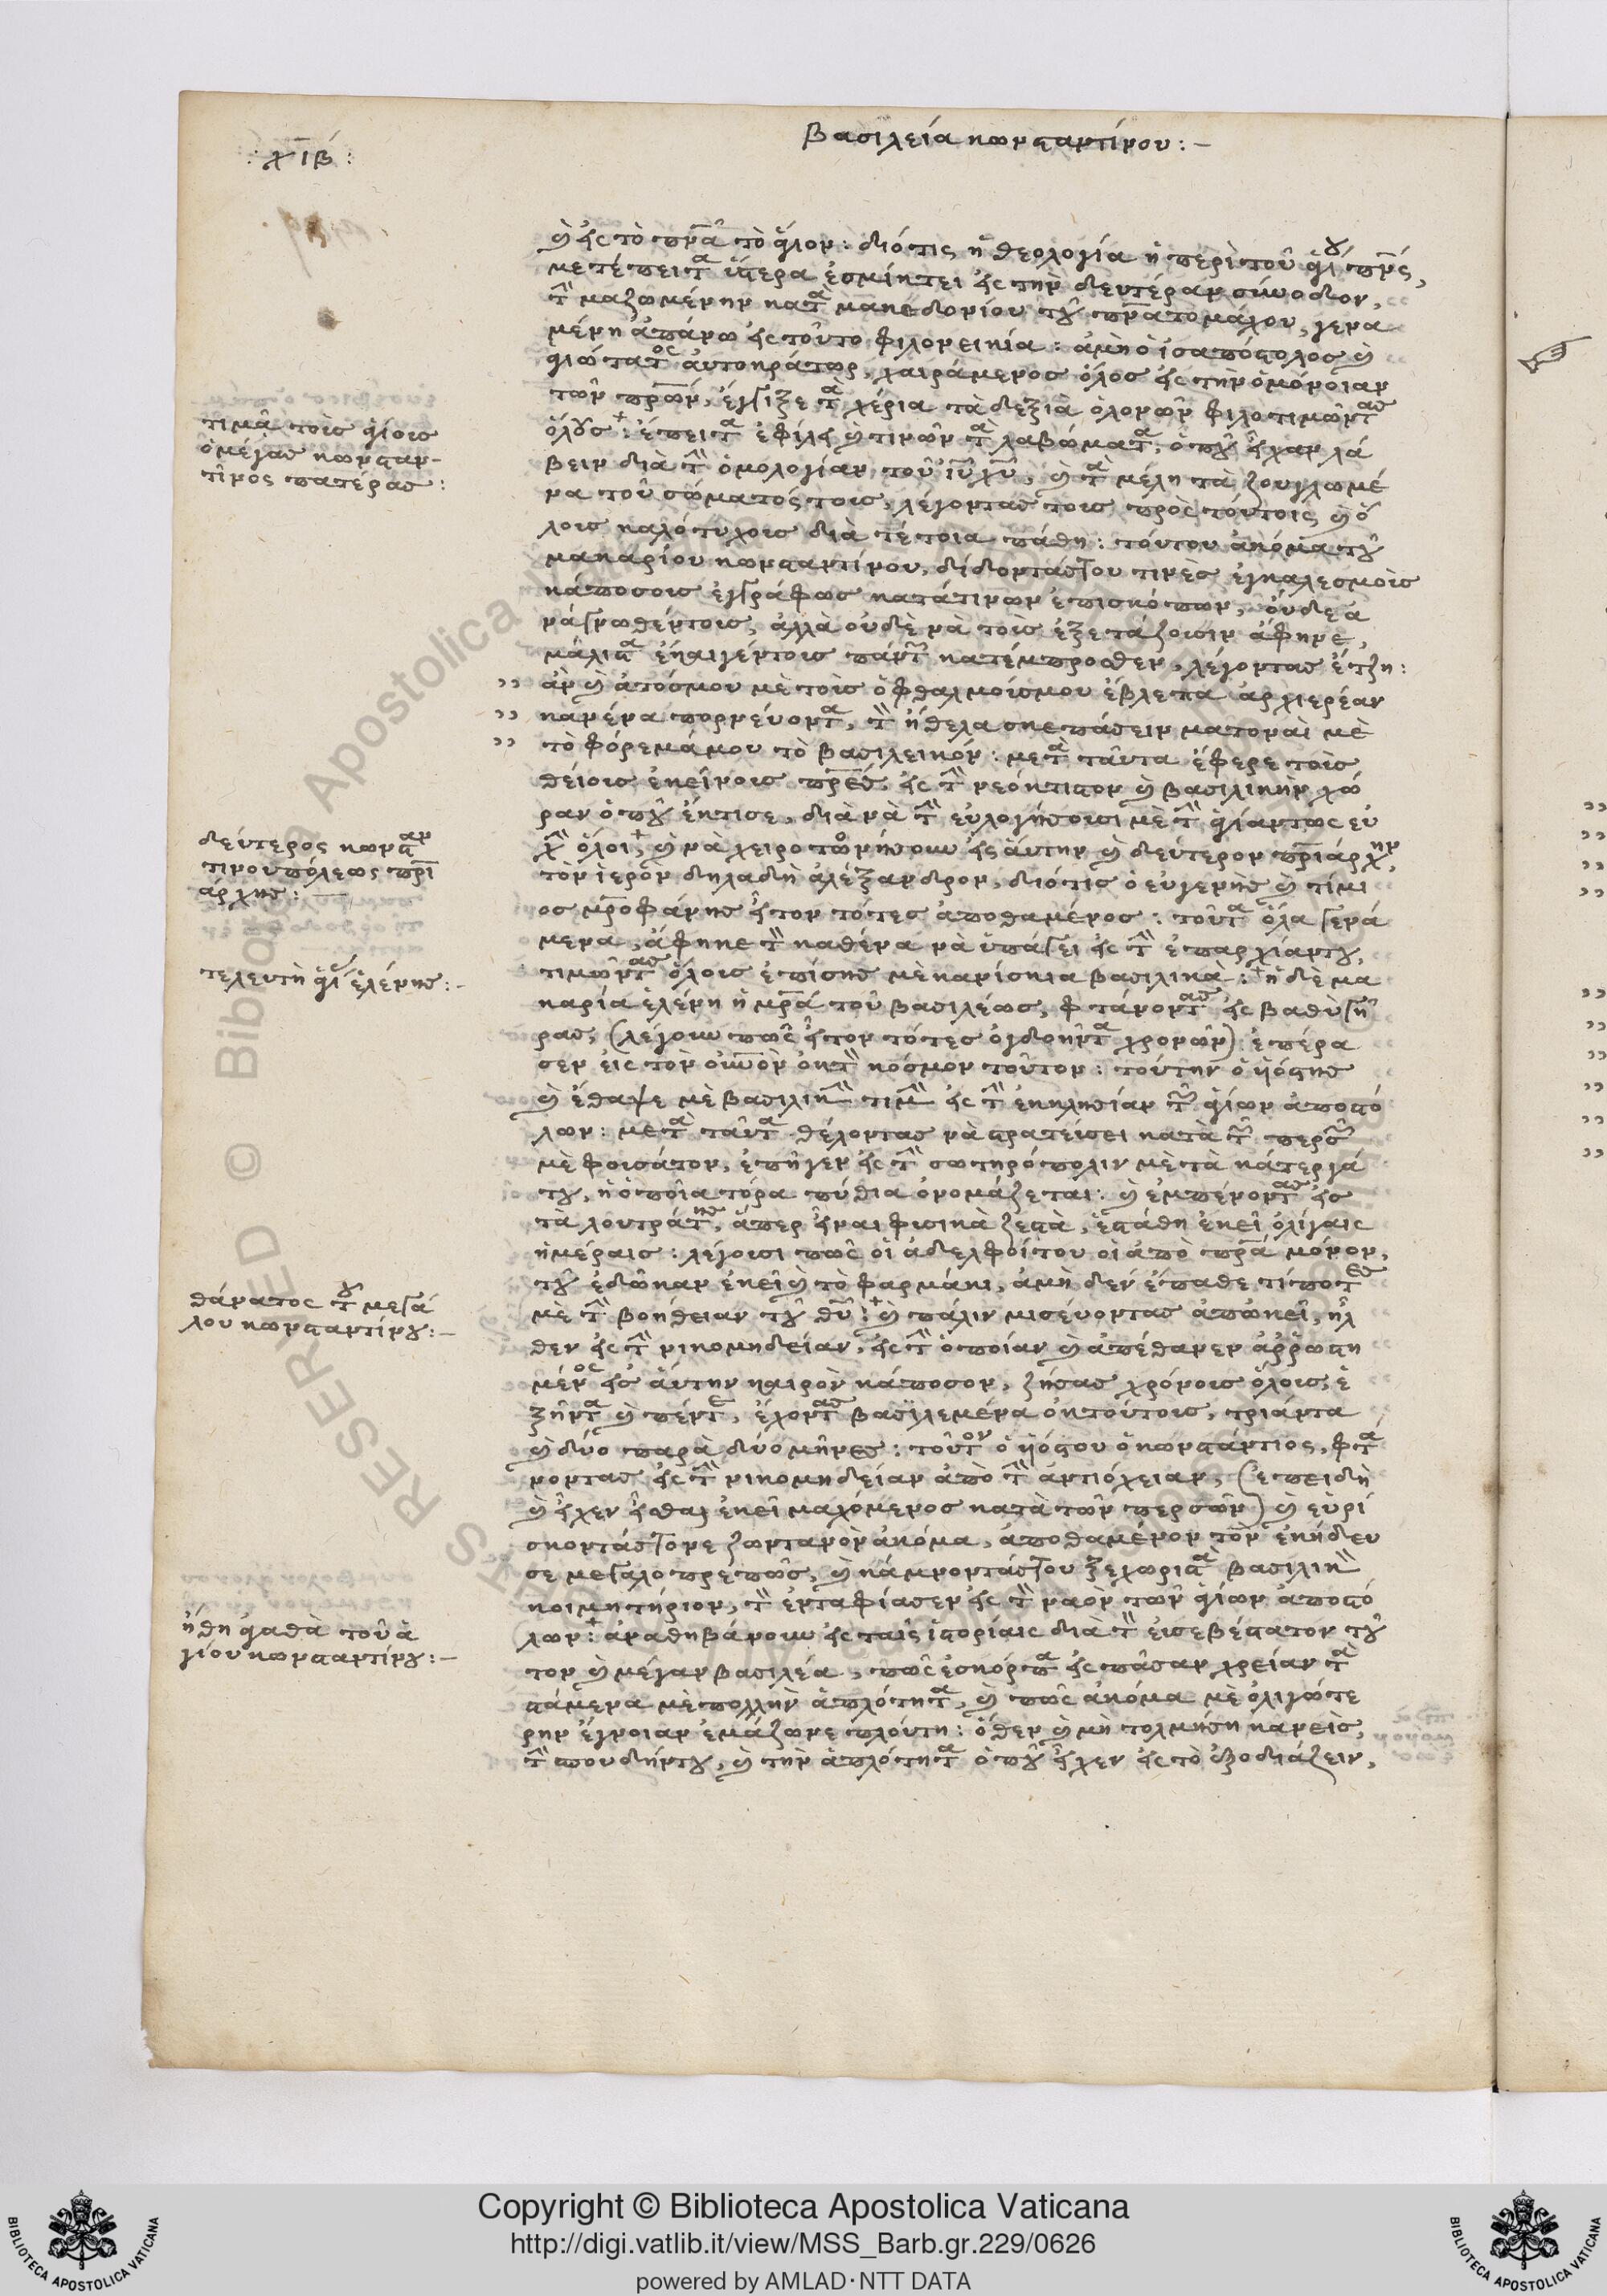 χιβ:
βασιλεία κωνσταντίνου:-
καὶ εἰς τὸ πνᾶ τὸ ἅγιον: διότις ἡ θεολογία ἡ περὶ τοῦ ἁγίου πνς,
μετέπειτα ὕστερα ἐσμίχτει εἰς τὴν δευτέραν σύνοδον,
τὴν μαζωμένην κατὰ μακεδονίου τοῦ πνατομάχου, γενα
μένη ἀπάνω εἰς τοῦτο φιλονεικία: ἀμὴ ὁ ἰσαπόστολος καὶ
ἁγιώτατος αὐτοκράτωρ, χαιράμενος ὅλος εἰς τὴν ὁμόνοιαν
τῶν πρων, ἔγγιζε τὰ χέρια τὰ δεξιὰ ὁλονῶν φιλοτιμῶντας
ὅλους: ἔπειτα ἐφίλει καὶ τινῶν τὰ λαβώματα, ὁποῦ εἶχαν λά
βειν διὰ τὴν ὁμολογίαν τοῦ ιυ χυ, καὶ τὰ μέλη τὰ ζουγλωμέ
να τοῦ σώματός τοις, λέγοντας τοις πρὸς τούτοις καὶ ὅ
λοις καλότυχοις διὰ τέτοια πάθη: τούτου ἀκόμα τοῦ
μακαρίου κωνσταντίνου, δίδοντάς του τινὲς ἐγκαλεσμοὶς
κάποσοις ἐγγράφως κατάτινων ἐπισκόπων, οὐδε ἀ
νάγνωθέντοις, ἀλλὰ οὐδὲ νὰ τοὶς ἐξετάζοισιν ἄφηνε,
μάλιστα ἔκαιγέντοις πάντων κατέμπροσθεν, λέγοντας ἔτζη:
,, ἂν καὶ ἀτόσμου μὲ τοὶς ὀφθαλμοίσμου ἔβλεπα ἀρχιερέαν
,, κανένα πορνεύοντα, τὸν ἤθελα σκεπάσειν ματοναὶ μὲ
,, τὸ φόρεμάμου τὸ βασιλεικόν: μετὰ ταῦτα ἔφερε τοὶς
θείοις ἐκείνοις πρες εἰς τὴν νεόκτιστον καὶ βασιλικὴν χώ
ραν ὁποῦ ἔκτισε, διὰ νὰ τὴν εὐλογήσοισι μὲ τὴν ἁγίαντως εὐ
χὴν ὅλοι, καὶ νὰ χειροτωνήσουν εἰς αὐτην καὶ δεύτερον πριάρχην,
τὸν ἱερὸν δηλαδὴ ἀλέξανδρον, διότις ὁ εὐγενὴς καὶ τίμι
ος μροφάνης εἶτον τότες ἀποθαμένος: τοῦτα ὅλα γενά
μενα, ἄφηκε τὸν καθένα νὰ ὑπάγει εἰς τὴν ἐπαρχίαντου,
τιμῶντας ὅλοις ἐπίσης μὲ κανίσκια βασιλικὰ: ἡ δὲ μα
καρία ἑλένη ἡ μρα τοῦ βασιλέως, φτάνοντας εἰς βαθὺ γῆ
ρας, (λέγουν πῶς εἶτον τότες ὀγδοῆντα χρονῶν) ἐπέρα
σεν εἰς τὸν οὐνὸν ὀκτὸν κόσμον τοῦτον: τούτην ὁ ὑιόστης
καὶ ἔθαψε μὲ βασιλικὴν τιμὴν εἰς τὴν ἐκκλησίαν τῶν ἁγίων ἀποστό
λων: μετὰ ταῦτα θέλοντας νὰ στρατεύσει κατὰ τῶν περσῶν
μὲ φοισάτον, ἐπῆγεν εἰς τὴν σωτηρόπολιν μὲ τὰ κάτεργά
του, ἡ ὁποῖα τόρα πύθια ὀνομάζεται: καὶ ἐμπένοντας εἰς
τὰ λουτράτης, ἅπερ εἶναι φισικὰ ζεστὰ, ἐστάθη ἐκεῖ ὀλίγαις
ἡμέραις: λέγοισι πῶς οἱ ἀδελφοίτου οἱ ἀπὸ πρα μόνον,
τοῦ ἐδῶκαν ἐκεῖ καὶ τὸ φαρμάκι, ἀμὴ δεν ἔπαθε τίποτες
μὲ τὴν βοήθειαν τοῦ θυ: καὶ πάλιν μισεύοντας ἀπῶκεῖ, ἦλ
θεν εἰς τὴν νικομηδείαν, εἰς τὴν ὁποίαν καὶ ἀπέθανεν ἀῤῥωστη
μένος εἰς αὐτην καιρὸν κάποσον, ζήσας χρόνοις ὅλοις, ἑ
ξῆντα καὶ πέντε, ἔχοντας βασϊλεμένα ὀκτούτοις, τριάντα
καὶ δύο παρὰ δύο μῆνες: τοῦτον ὁ ὑιόστου ὁ κωνστάντιος, φτά
νοντας εἰς τὴν νικομηδείαν ἀπὸ τὴν ἀντιόχειαν, (ἐπειδὴ
καὶ εἶχεν εἶσθαι ἐκεῖ μαχόμενος κατὰ τῶν περσῶν) καὶ εὑρί
σκοντάς τονε ζωντανὸν ἀκόμα, ἀποθαμένον τὸν ἐκήδευ
σε μεγαλοπρεπῶς, καὶ κάμνοντάς του ξεχωριστὰ βασιλικὸν
κοιμητήριον, τὸν ἐνταφίασεν εἰς τὸν ναὸν τῶν ἁγίων ἀποστό
λων: ἀναθηβάνουν εἰς ταὶς ἱστορίαις διὰ τὸν εἰσεβέστατον τοῦ
τον καὶ μέγαν βασιλέα, πῶς ἐσκόρπα εἰς πᾶσαν χρείαν τὰ
στάμενα μὲ πολλὴν ἁπλότητα, καὶ πῶς ἀκόμα μὲ ὀλιγώτε
ρην ἔγνοιαν ἐμάζωνε πλούτη: ὅθεν καὶ μὴ τολμήση κανεὶς,
τὴν σπουδήντου, καὶ τὴν ἁπλότητα ὁποῦ εἶχεν εἰς τὸ ἐξοδιάζειν,
τιμᾶ τοὶς ἁγίοις
ὁ μέγας κωνσταν-
τῖνος πατέρας:
δεύτερος κωνσταν
τινουπόλεως πρι
άρχης:
τελευτὴ ἁγί ἑλένης:-
θάνατος τοῦ μεγά
λου κωνσταντίνου:-
ἤθη ἀγαθὰ τοῦ ἁ
γίου κωνσταντίνου:-
Copyright © Biblioteca Apostolica Vaticana
http://digi.vatlib.it/view/MSS_Barb.gr.229/0626
powered by AMLAD·NTT DATA
BIBLIOTECA APOSTOLICA VATICANA
BIBLIOTECA APOSTOLICA VATICANA